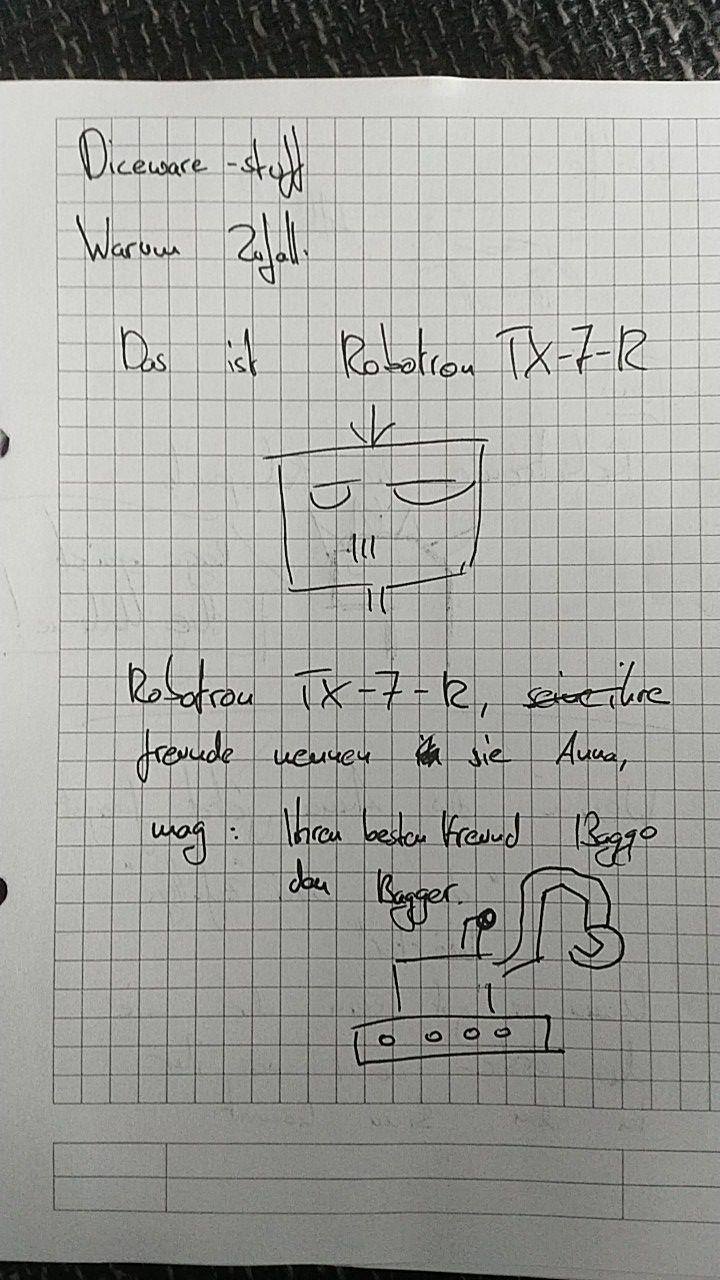 Diceware -stuff
Warum Zufall.
Das ist Robotron TX-7-R
Robotron TX-7-R, seine ihre
freunde nennen sie Anna,
mag: Ihren besten Freund Baggo
den Bagger.